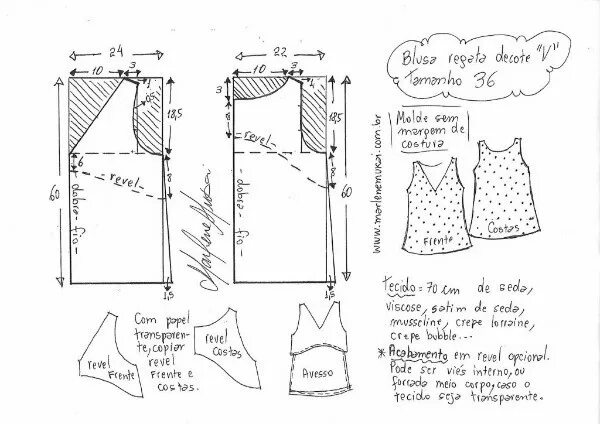 Blusa regata decote "V"
Tamanho 36
Molde sem
margem de
costura
www.marlenemukai.com.br
24
10
3
4
0,5
18,5
6
revel
8
60
-dobra-fio-
1,5
Marlene Mukai
22
10
3
4
3
8
revel
18,5
8
60
-dobra-fio-
1,5
Frente
Costas
Tecido = 70 cm de seda,
viscose, satim de seda,
musseline, crepe lorraine,
crepe bubble...
* Acabamento em revel opcional.
Pode ser viés interno, ou
forrada meio corpo, caso o
tecido seja transparente.
revel
Frente
Com papel
transparen-
te, copiar
revel
Frente e
costas.
revel
Costas
Avesso